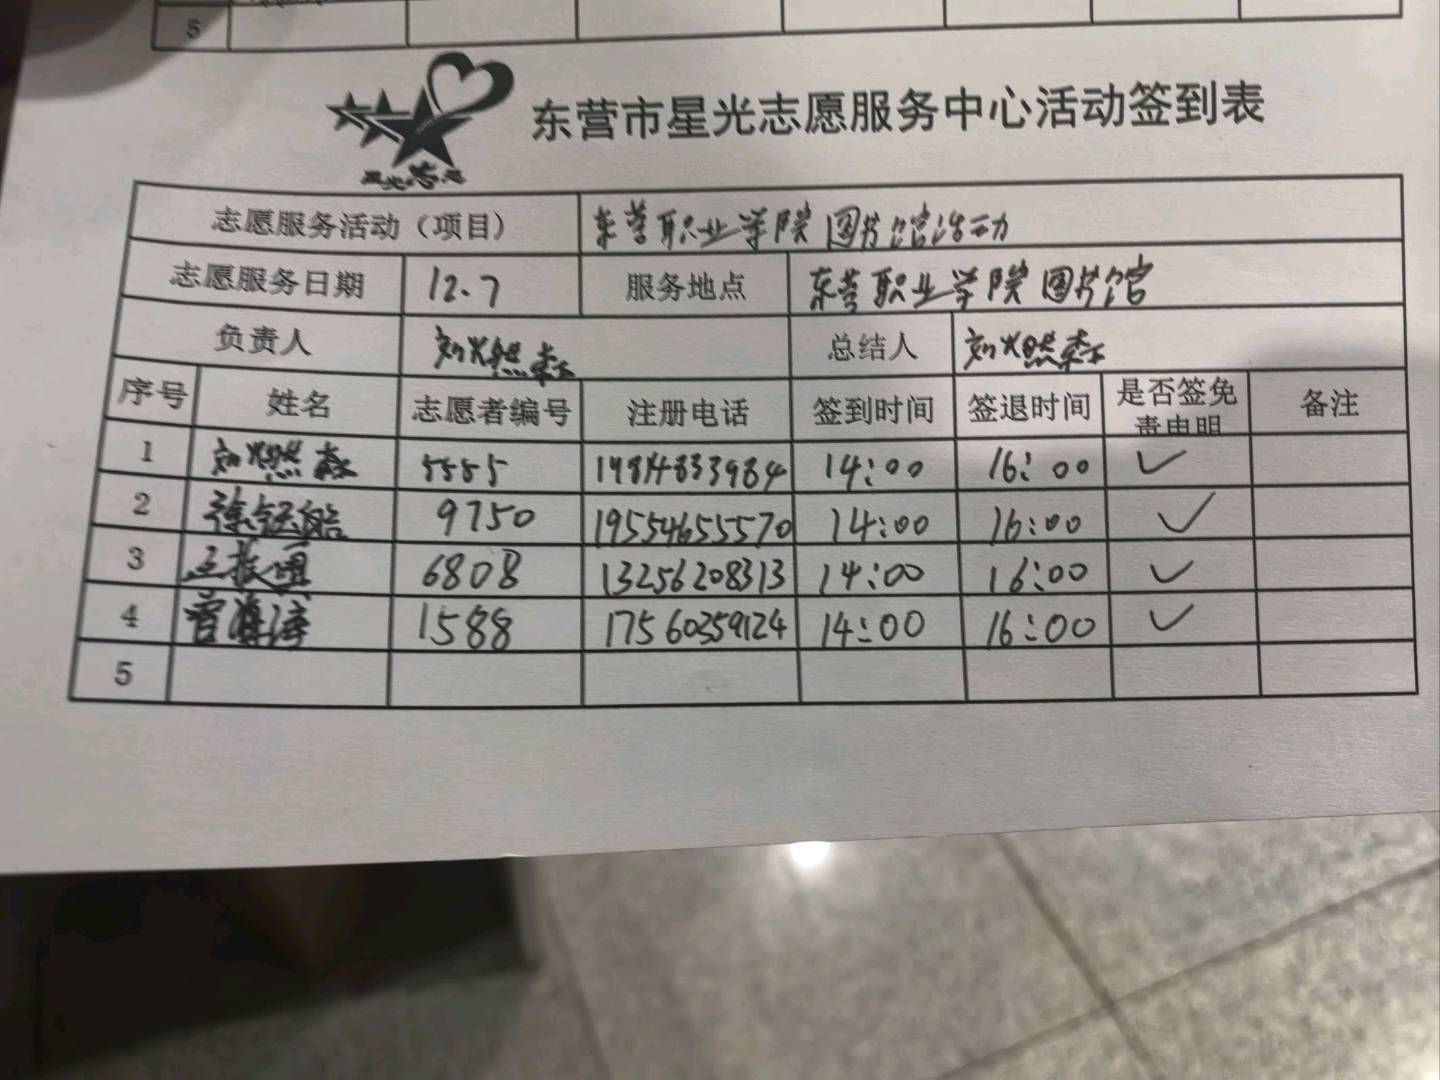 5
星光志愿
东营市星光志愿服务中心活动签到表
志愿服务活动（项目） 东营职业学院图书馆活动
志愿服务日期 12.7 服务地点 东营职业学院图书馆
负责人 刘燃森 总结人 刘燃森
序号 姓名 志愿者编号 注册电话 签到时间 签退时间 是否签免责申明 备注
1 刘燃森 5585 19814833984 14:00 16:00 ✓
2 9750 19554655570 14:00 16:00 ✓
3 6808 13256208313 14:00 16:00 ✓
4 1588 17560359124 14:00 16:00 ✓
5